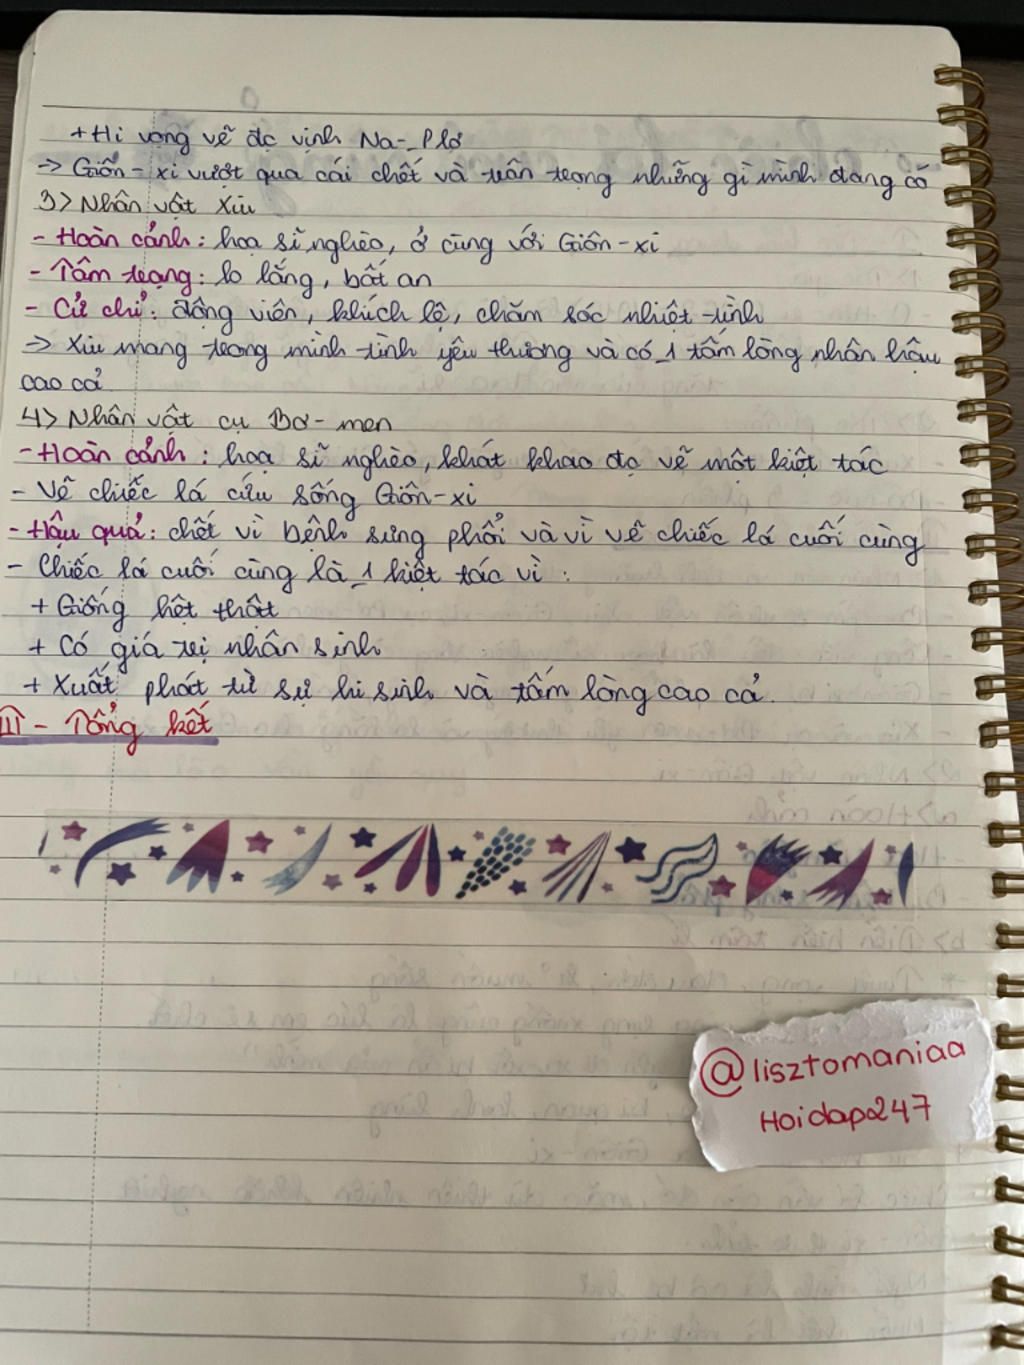 + Hi vọng vẽ đc vịnh Na-Plơ
→ Giôn-xi vượt qua cái chết và trân trọng những gì mình đang có
3> Nhân vật Xiu
- Hoàn cảnh: họa sĩ nghèo, ở cùng với Giôn-xi
- Tâm trạng: lo lắng, bất an
- Cử chỉ: động viên, khích lệ, chăm sóc nhiệt tình
→ Xiu mang trong mình tình yêu thương và có 1 tấm lòng nhân hậu
cao cả
4> Nhân vật cụ Bơ-men
- Hoàn cảnh: họa sĩ nghèo, khát khao đc vẽ một kiệt tác
- Vẽ chiếc lá cứu sống Giôn-xi
- Hậu quả: chết vì bệnh sưng phổi và vì vẽ chiếc lá cuối cùng
- Chiếc lá cuối cùng là 1 kiệt tác vì:
+ Giống hệt thật
+ Có giá trị nhân sinh
+ Xuất phát từ sự hi sinh và tấm lòng cao cả.
III - Tổng kết
@lisztomaniaa
Hoidap247